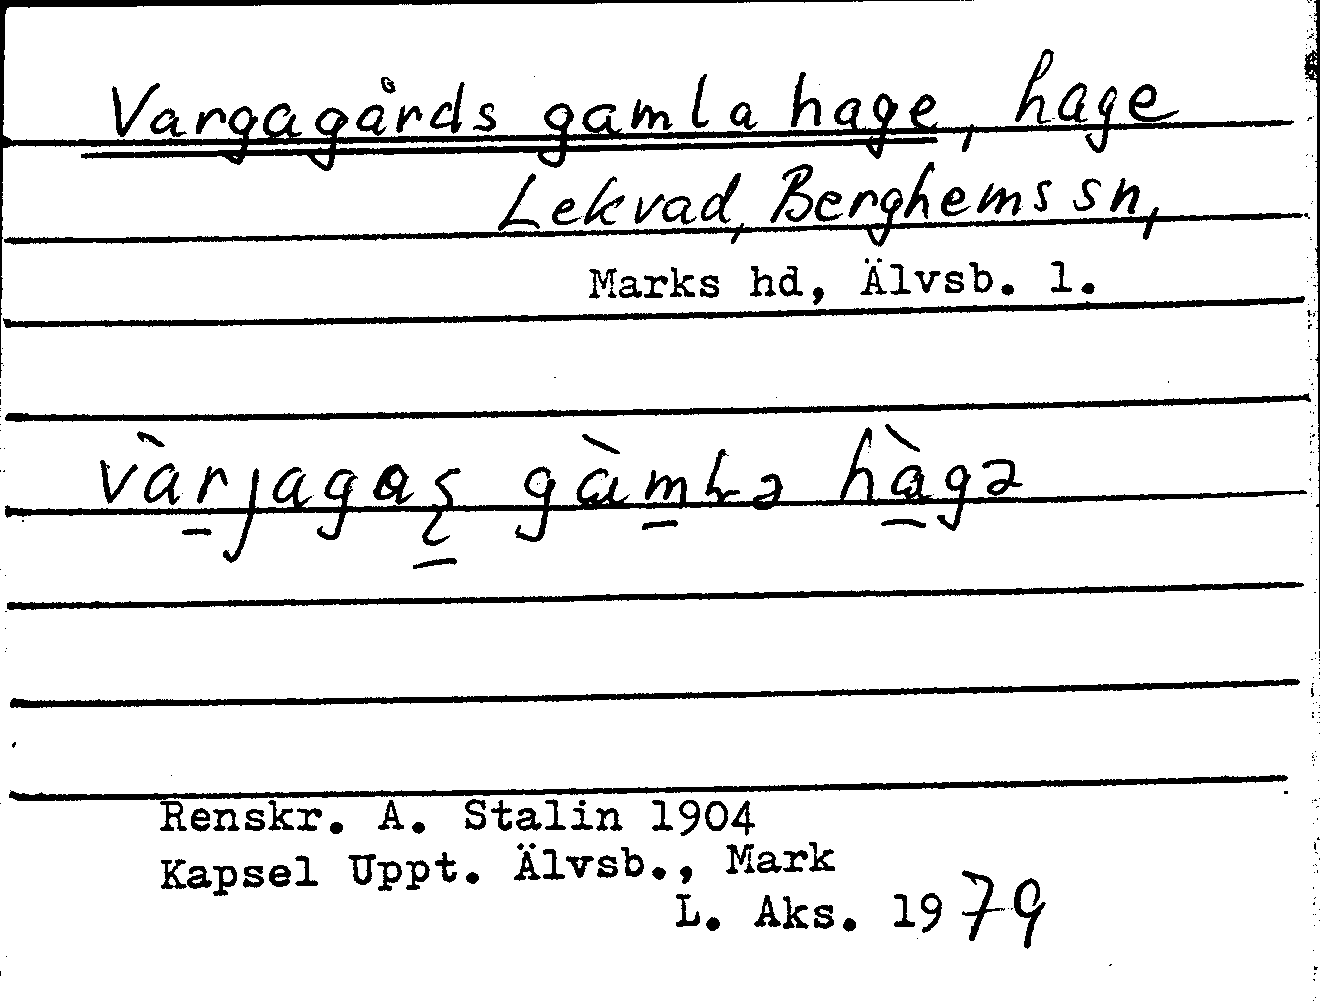 Vargagårds gamla hage, hage
Lekvad, Berghems sn,
Marks hd, Älvsb. l.
hàgə
Renskr. A. Stalin 1904
Kapsel Uppt. Älvsb., Mark
L. Aks. 1979